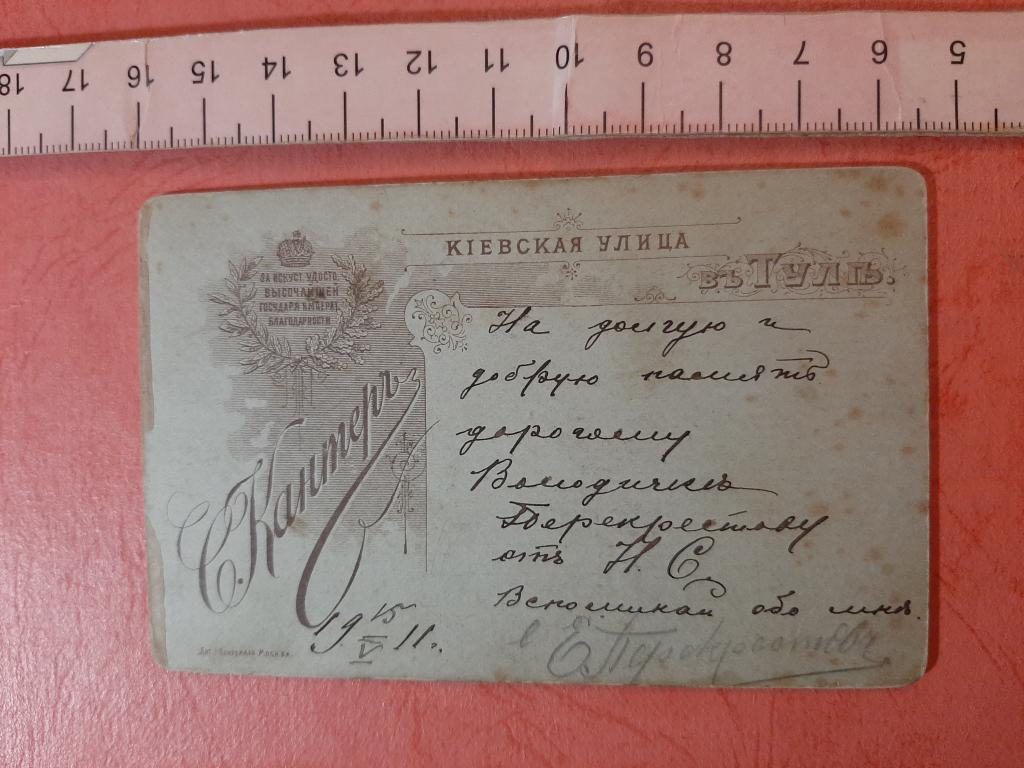 18 17 16 15 14 13 12 11 10 9 8 7 6 5
КІЕВСКАЯ УЛИЦА
въ Тулѣ.
ЗА ИСКУСТ. УДОСТО.
ВЫСОЧАЙШЕЙ
ГОСУДАРЯ ИМПЕРАТ.
БЛАГОДАРНОСТИ
С. Кантеръ
На долгую и
добрую память
дорогому
Володичкѣ
Перекрестову
отъ Н. С.
Вспоминай обо мнѣ.
19 15/V 11.
Е. Перекрестовъ
Москва.